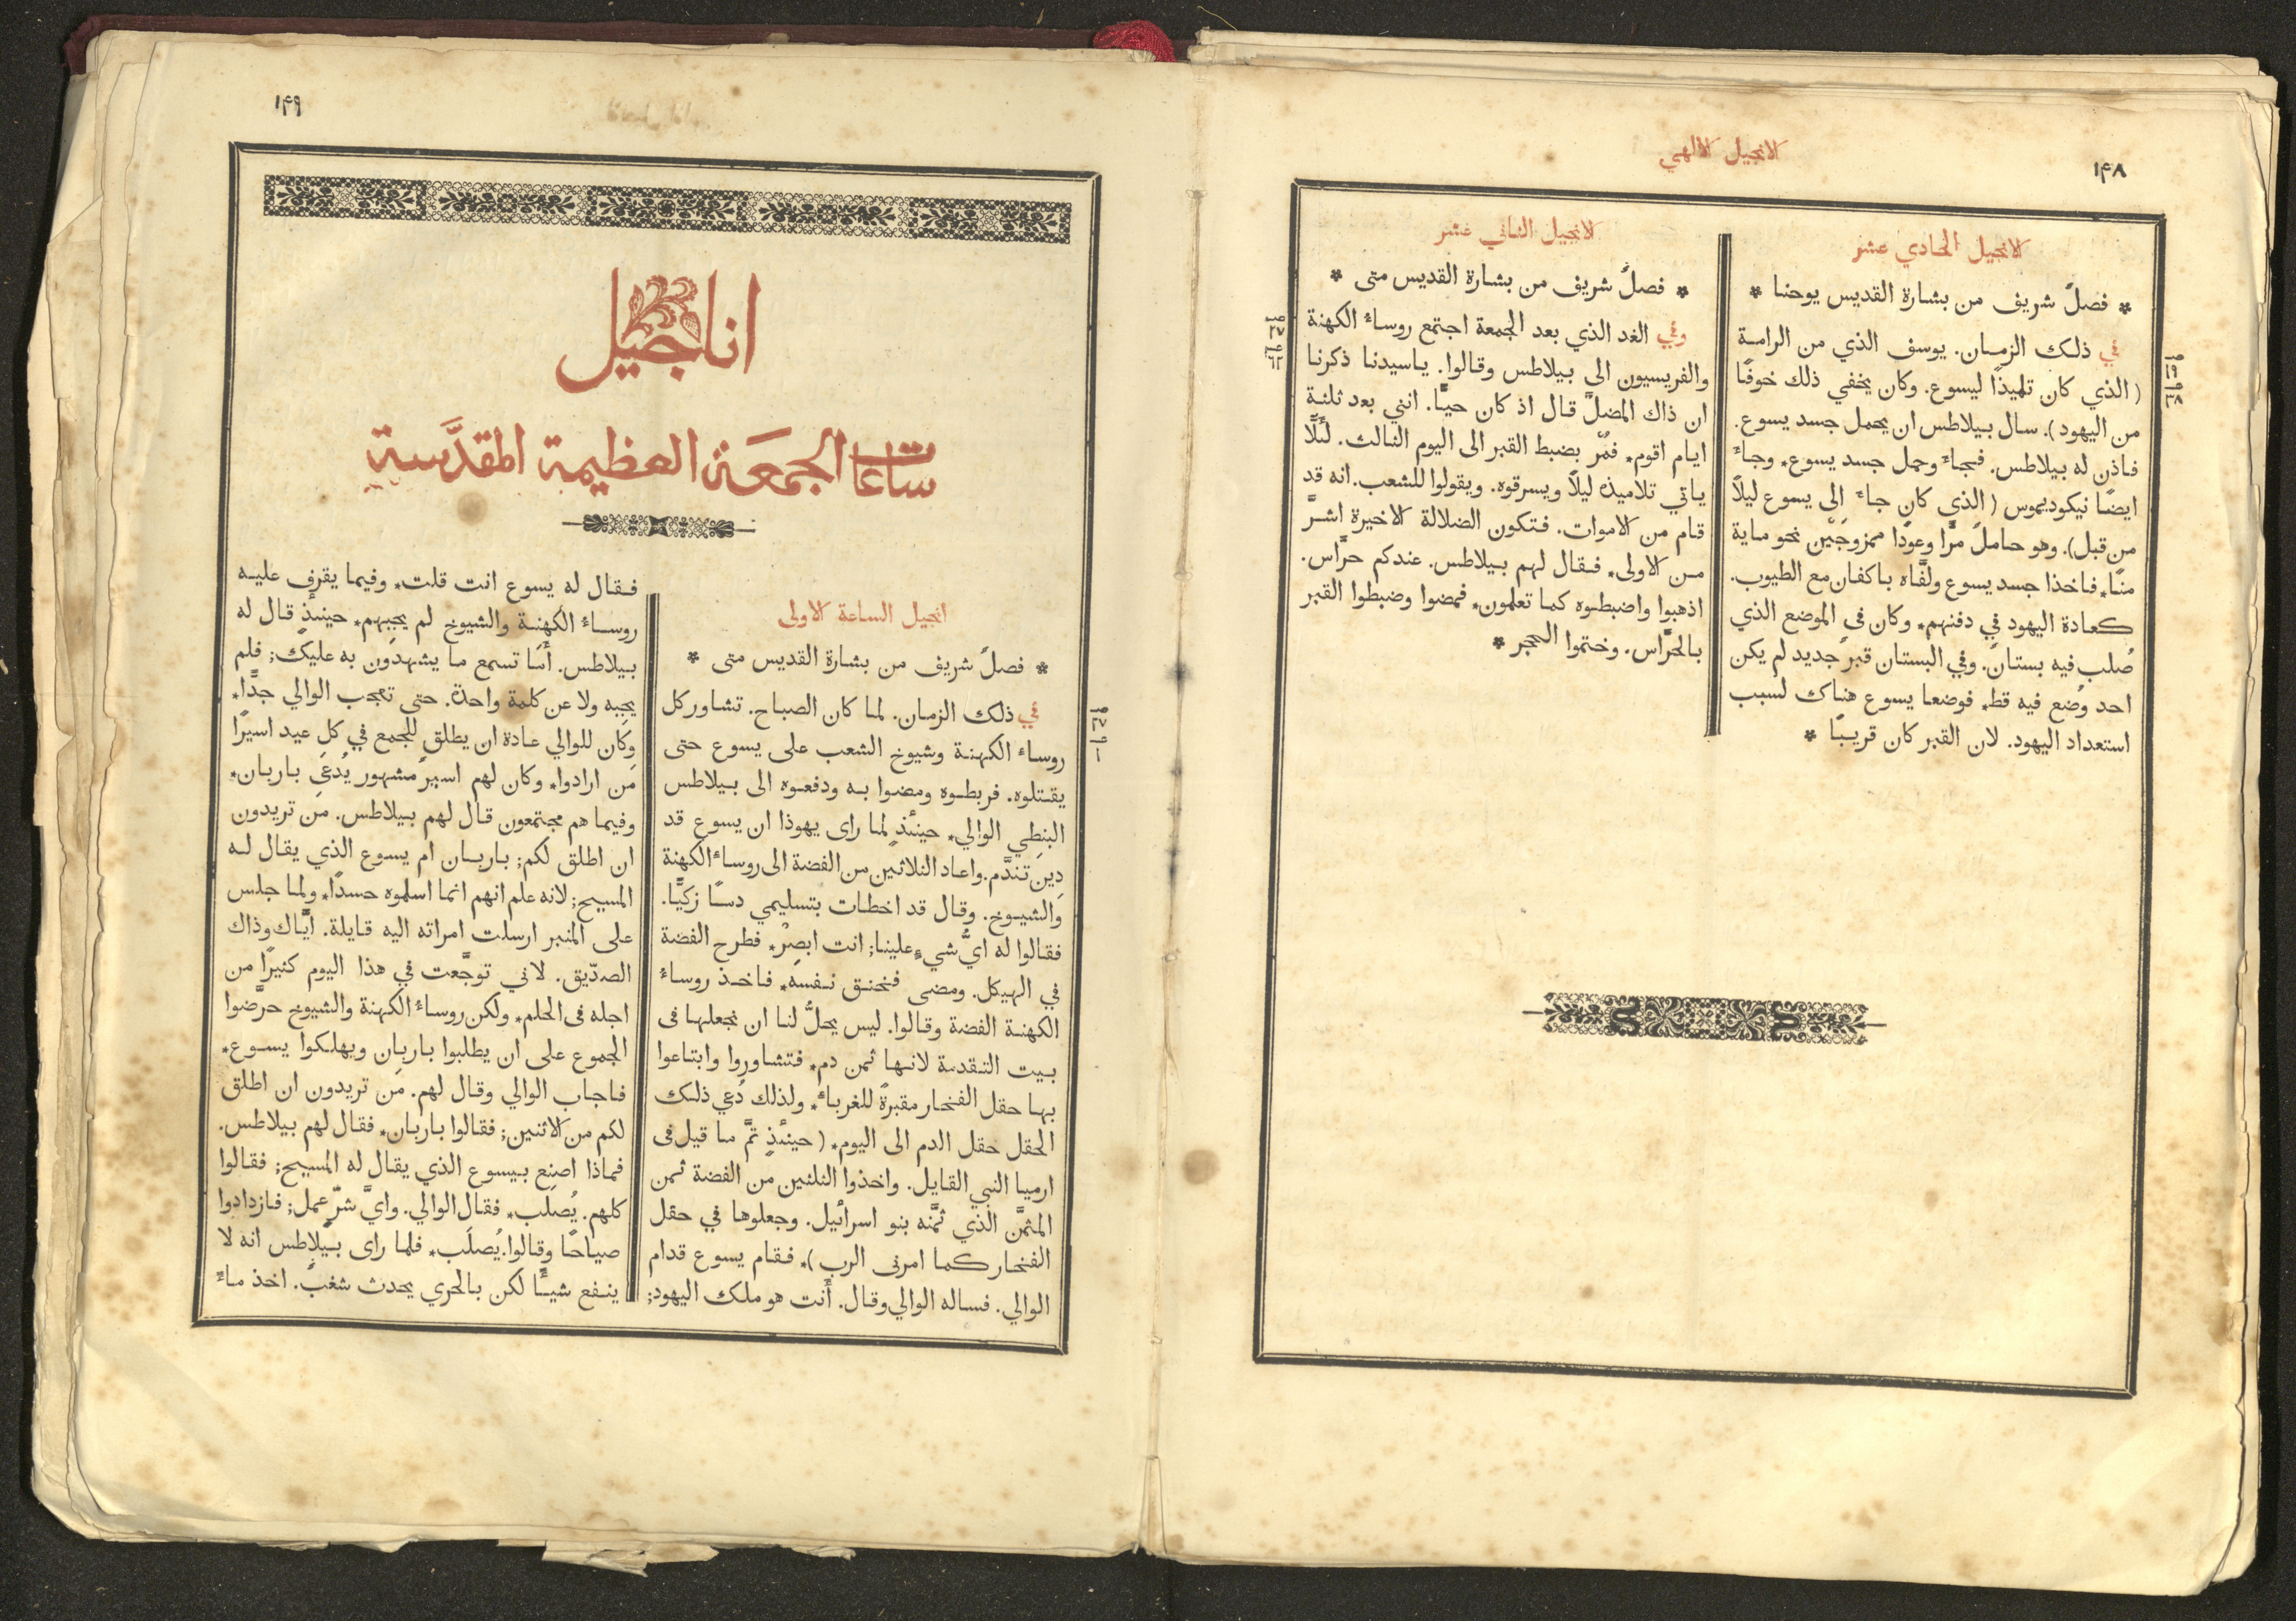 ١٤٨
الانجيل الالهي
الانجيل الحادي عشر
* فصلٌ شريف من بشارة القديس يوحنا *
في ذلك الزمان. يوسف الذي من الرامة
( الذي كان تلميذًا ليسوع. وكان يخفي ذلك خوفًا
من اليهود ). سال بيلاطس ان يحمل جسد يسوع.
فاذن له بيلاطس. فجاءَ وحمل جسد يسوع* وجاءَ
ايضًا نيكوديموس ( الذي كان جاءَ الى يسوع ليلًا
من قبل ). وهو حاملٌ مرًّا وعودًا ممزوجَيْن نحو ماية
منًا* فاخذا جسد يسوع ولفَّاه باكفان مع الطيوب.
كعادة اليهود في دفنهم* وكان في الموضع الذي
صُلب فيه بستانٌ. وفي البستان قبرٌ جديد لم يكن
احد وُضع فيه قط* فوضعا يسوع هناك لسبب
استعداد اليهود. لان القبر كان قريبًا *
ص
١٩
ص
٣٨
الانجيل الثاني عشر
* فصلٌ شريف من بشارة القديس متى *
وفي الغد الذي بعد الجمعة اجتمع روساءُ الكهنة
والفريسيون الى بيلاطس وقالوا. ياسيدنا ذكرنا
ان ذاك المضلَّ قال اذ كان حيًّا. انني بعد ثلثة
ايام اقوم* فمُرْ بضبط القبر الى اليوم الثالث. لئَلَّا
ياتي تلاميذه ليلًا ويسرقوه. ويقولوا للشعب. انه قد
قام من الاموات. فتكون الضلالة الاخيرة اشرَّ
من الاولى* فقال لهم بيلاطس. عندكم حرَّاس.
اذهبوا واضبطوه كما تعلمون* فمضوا وضبطوا القبر
بالحرَّاس. وختموا الحجر *
ص
٢٧
ص
٦٢
١٤٩
اناجيل
ساعات الجمعَة العظيمة المقدَّسة
انجيل الساعة الاولى
* فصلٌ شريف من بشارة القديس متى *
في ذلك الزمان. لما كان الصباح. تشاور كل
روساء الكهنة وشيوخ الشعب على يسوع حتى
يقتلوه. فربطوه ومضوا به ودفعوه الى بيلاطس
البنطي الوالي* حينئذٍ لما راى يهوذا ان يسوع قد
دِينَ تندَّم. واعاد الثلاثين من الفضة الى روساءُ الكهنة
والشيوخ. وقال قد اخطات بتسليمي دمًا زكيًّا.
فقالوا له ايُّ شيءٍ علينا; انت ابصِرْ* فطرح الفضة
في الهيكل. ومضى فخنق نفسه* فاخذ روساءُ
الكهنة الفضة وقالوا. ليس يحلُّ لنا ان نجعلها في
بيت التقدمة لانها ثمن دم* فتشاوروا وابتاعوا
بها حقل الفخار مقبرةً للغرباءِ* ولذلك دُعي ذلك
الحقل حقل الدم الى اليوم* ( حينئذٍ تمَّ ما قيل في
ارميا النبي القايل. واخذوا الثلثين من الفضة ثمن
المثمَّن الذي ثمَّنه بنو اسرائيل. وجعلوها في حقل
الفخار كما امرني الرب )* فقام يسوع قدام
الوالي. فساله الوالي وقال. أَنت هو ملك اليهود;
ص
٢٧
ص
١
فقال له يسوع انت قلت* وفيما يقرف عليه
روساءُ الكهنة والشيوخ لم يجبهم* حينئذٍ قال له
بيلاطس. أَما تسمع ما يشهدون به عليك; فلم
يجبه ولا عن كلمة واحدة. حتى تعجب الوالي جدًّا*
وكان للوالي عادة ان يطلق للجمع في كل عيد اسيرًا
مَن ارادوا* وكان لهم اسيرٌ مشهور يُدعَى باربان*
وفيما هم مجتمعون قال لهم بيلاطس. مَن تريدون
ان اطلق لكم; باربان ام يسوع الذي يقال له
المسيح; لانه علم انهم انما اسلموه حسدًا* ولما جلس
على المنبر ارسلت امراته اليه قايلة. ايَّاك وذاك
الصدّيق. لاني توجَّعت في هذا اليوم كثيرًا من
اجله في الحلم* ولكن روساءُ الكهنة والشيوخ حرَّضوا
الجموع على ان يطلبوا باربان ويهلكوا يسوع*
فاجاب الوالي وقال لهم. مَن تريدون ان اطلق
لكم من الاثنين; فقالوا باربان* فقال لهم بيلاطس.
فماذا اصنع بيسوع الذي يقال له المسيح; فقالوا
كلهم. يُصلَب* فقال الوالي. وايَّ شرٍّ عمل; فازدادوا
صياحًا وقالوا. يُصلَب* فلما راى بيلاطس انه لا
ينفع شيئًا لكن بالحري يحدث شغبٌ. اخذ ماءً